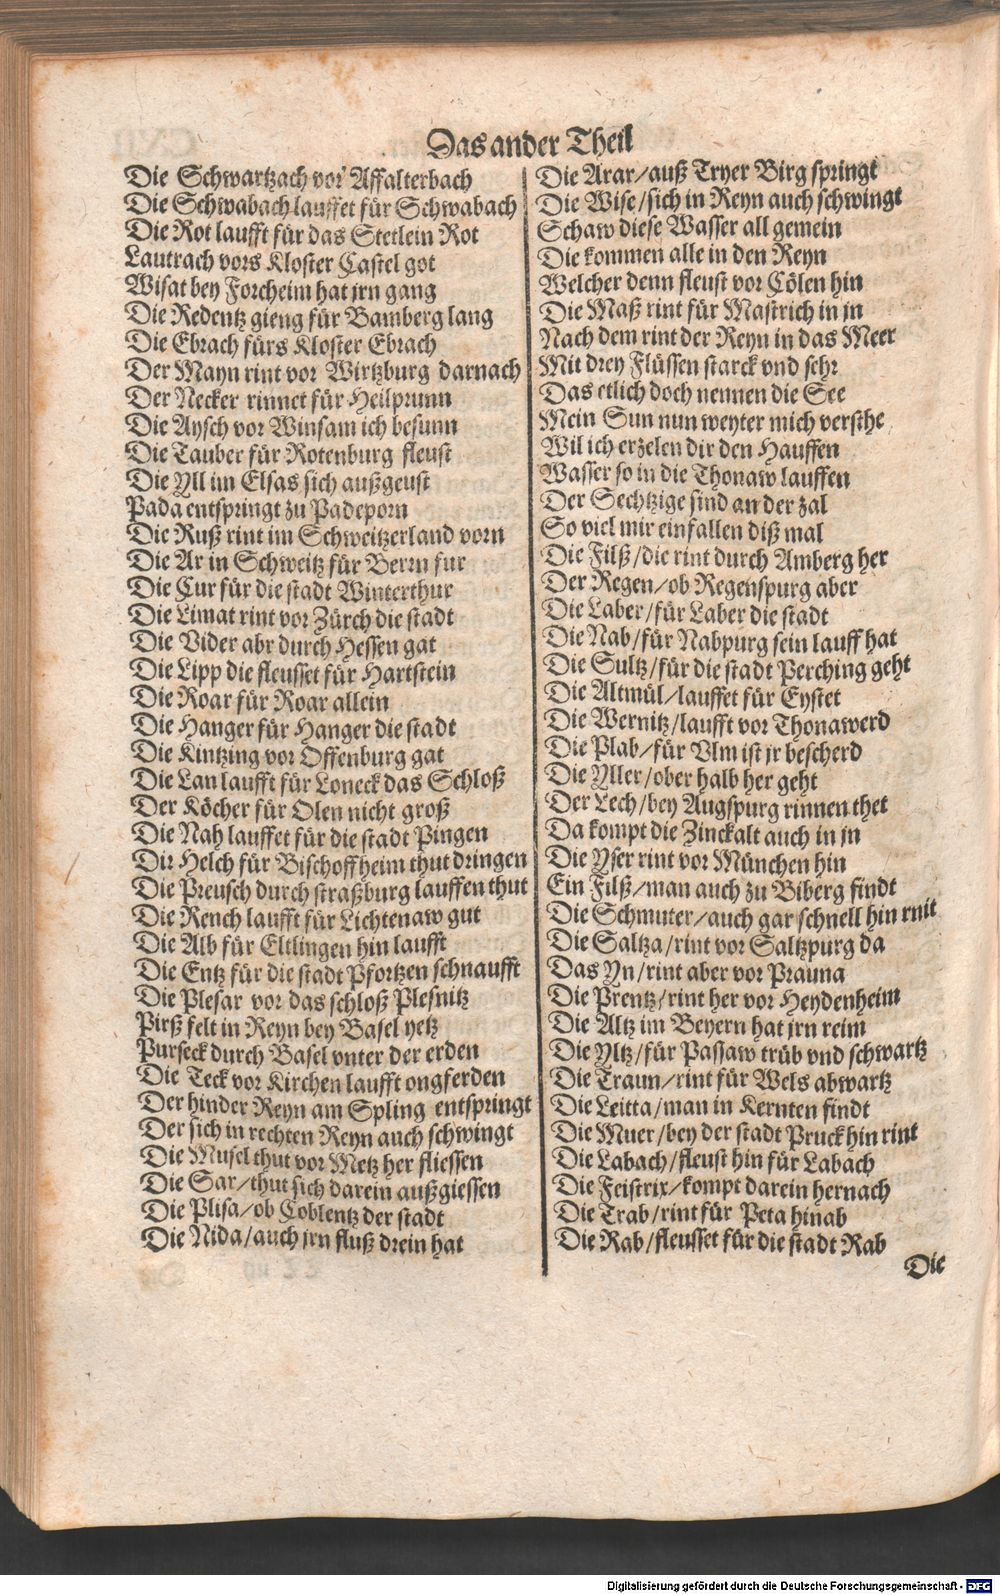 Das ander Theil
Die Schwartzach vor Affalterbach
Die Schwabach lauffet für Schwabach
Die Rot laufft für das Stetlein Rot
Lautrach vors Kloster Castel got
Wisat bey Forcheim hat jrn gang
Die Redentz gieng für Bamberg lang
Die Ebrach fürs Kloster Ebrach
Der Mayn rint vor Wirtzburg darnach
Der Necker rinnet für Heilprunn
Die Aysch vor Winsam ich besunn
Die Tauber für Rotenburg fleust
Die Yll im Elsas sich außgeust
Pada entspringt zu Padeporn
Die Ruß rint im Schweitzerland vorn
Die Ar in Schweitz für Bern fur
Die Cur für die stadt Winterthur
Die Limat rint vor Zürch die stadt
Die Vider abr durch Hessen gat
Die Lipp die fleusset für Hartstein
Die Roar für Roar allein
Die Hanger für Hanger die stadt
Die Kintzing vor Offenburg gat
Die Lan laufft für Loneck das Schloß
Der Köcher für Olen nicht groß
Die Nah lauffet für die stadt Pingen
Dir Helch für Bischoffheim thut dringen
Die Preusch durch straßburg lauffen thut
Die Rench laufft für Lichtenaw gut
Die Alb für Eltlingen hin laufft
Die Entz für die stadt Pfortzen schnaufft
Die Plesar vor das schloß Plesnitz
Pirß felt in Reyn bey Basel yetz
Purseck durch Basel vnter der erden
Die Teck vor Kirchen laufft ongferden
Der hinder Reyn am Spling entspringt
Der sich in rechten Reyn auch schwingt
Die Musel thut vor Metz her fliessen
Die Sar/thut sich darein außgiessen
Die Plisa/ob Coblentz der stadt
Die Nida/auch jrn fluß drein hat
Die Arar/auß Tryer Birg springt
Die Wise/sich in Reyn auch schwingt
Schaw diese Wasser all gemein
Die kommen alle in den Reyn
Welcher denn fleust vor Cölen hin
Die Maß rint für Mastrich in jn
Nach dem rint der Reyn in das Meer
Mit drey Flüssen starck vnd sehr
Das etlich doch nennen die See
Mein Sun nun weyter mich versthe
Wil ich erzelen dir den Hauffen
Wasser so in die Thonaw lauffen
Der Sechtzige sind an der zal
So viel mir einfallen diß mal
Die Filß/die rint durch Amberg her
Der Regen/ob Regenspurg aber
Die Laber/für Laber die stadt
Die Nab/für Nabpurg sein lauff hat
Die Sultz/für die stadt Perching geht
Die Altmül/lauffet für Eystet
Die Wernitz/laufft vor Thonawerd
Die Plab/für Vlm ist jr bescherd
Die Yller/ober halb her geht
Der Lech/bey Augspurg rinnen thet
Da kompt die Zinckalt auch in jn
Die Yser rint vor München hin
Ein Filß/man auch zu Biberg findt
Die Schmuter/auch gar schnell hin rnit
Die Saltza/rint vor Saltzpurg da
Das Yn/rint aber vor Prauna
Die Prentz/rint her vor Heydenheim
Die Altz im Beyern hat jrn reim
Die Yltz/für Passaw trüb vnd schwartz
Die Traun/rint für Wels abwartz
Die Leitta/man in Kernten findt
Die Muer/bey der stadt Pruck hin rint
Die Labach/fleust hin für Labach
Die Feistrix/kompt darein hernach
Die Trab/rint für Peta hinab
Die Rab/fleusset für die stadt Rab
Die
Digitalisierung gefördert durch die Deutsche Forschungsgemeinschaft - DFG